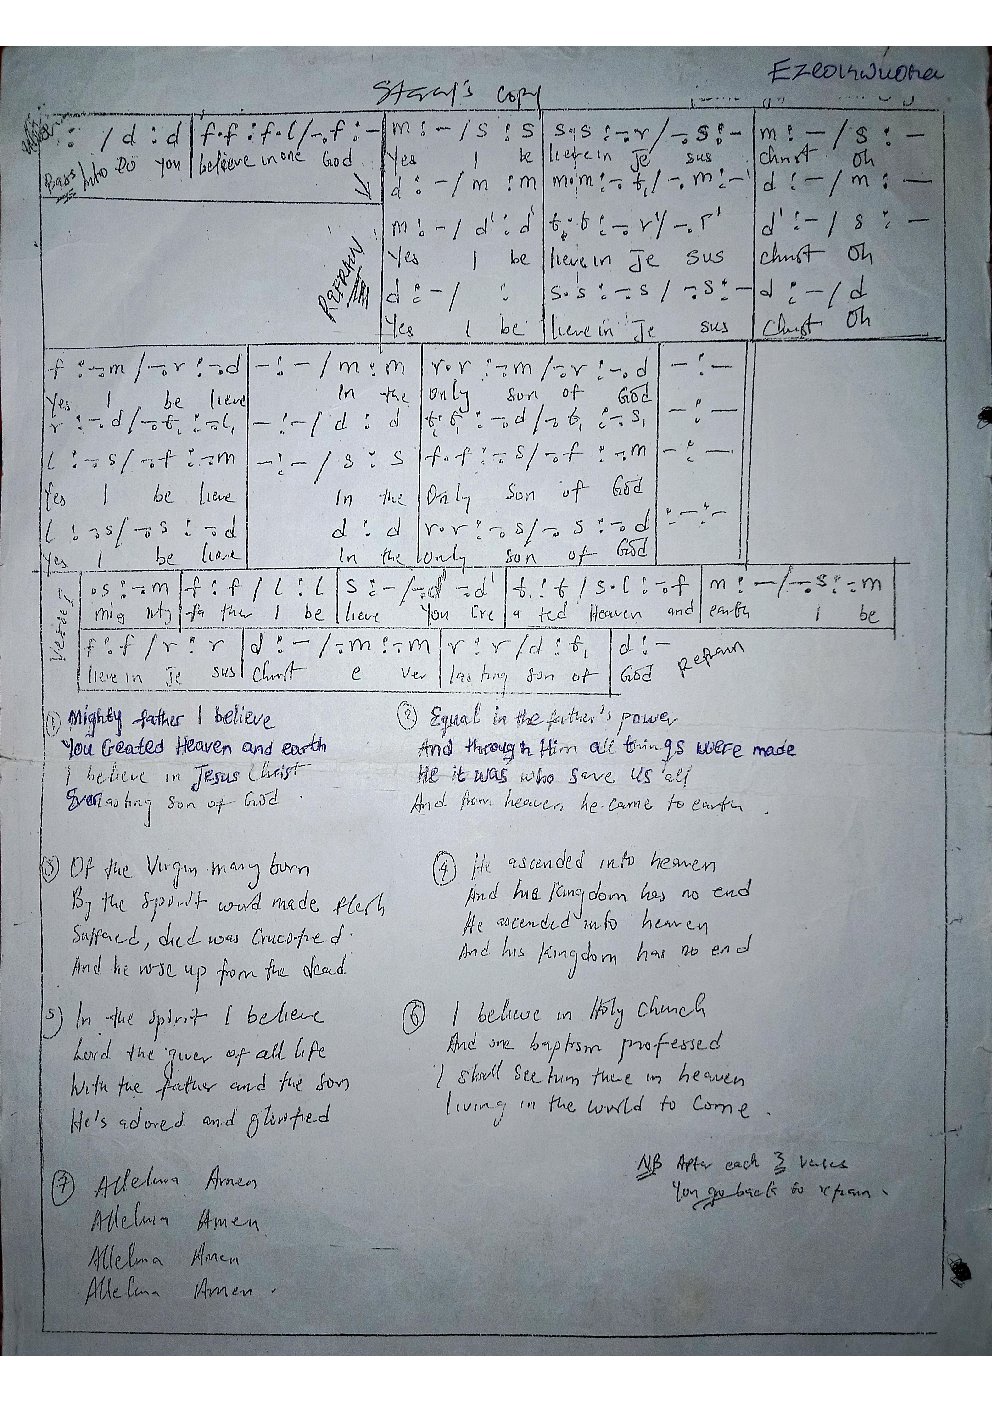 Ezeokwuora
Staray's copy
: / d : d | f.f : f.l / -.f : - | m : - / s : s | s.s : -.r / -.s : - | m : - / s : -
Bass Who Do You | believe in one God | Yes I be | lieve in Je sus | Christ Oh
d : - / m : m | m.m : -.t, / -.m : - | d : - / m : -
m : - / d' : d' | t.t : -.r' / -.r' | d' : - / s : -
REFRAIN
Yes I be | lieve in Je sus | Christ Oh
d : - / : | s.s : -.s / -.s : - | d : - / d
Yes I be | lieve in Je sus | Christ Oh
f : -.m / -.r : -.d | - : - / m : m | r.r : -.m / -.r : -.d | - : -
Yes I be lieve | In the | Only son of God
r : -.d / -.t, : -.l, | - : - / d : d | t,.t, : -.d / -.t, : -.s, | - : -
l : -.s / -.f : -.m | - : - / s : s | f.f : -.s / -.f : -.m | - : -
Yes I be lieve | In the | Only son of God
l : -.s / -.s : -.d | d : d | r.r : -.s / -.s : -.d | : - : -
Yes I be lieve | In the | only son of God
Verses
.s : -.m | f : f / l : l | s : - / -.d' : -.d' | t : t / s.l : -.f | m : - / -.s : -.m
mig hty | fa ther I be | lieve You Cre | a ted Heaven and | earth I be
f : f / r : r | d : - / -.m : -.m | r : r / d : t, | d : -
lieve in Je sus | Christ e ver | lasting son of | God Refrain
① Mighty father I believe
You Created Heaven and earth
I believe in Jesus Christ
Everlasting son of God.
② Equal in the father's power
And through Him all things were made
He it was who save us all
And from heaven he came to earth.
③ Of the Virgin mary born
By the spirit word made flesh
Suffered, died was Crucified.
And he rose up from the dead.
④ He ascended into heaven
And his kingdom has no end
He ascended into heaven
And his kingdom has no end
⑤ In the spirit I believe
Lord the giver of all life
With the father and the son
He's adored and glorified
⑥ I believe in Holy Church
And one baptism professed
I shall see him there in heaven
living in the world to come.
⑦ Alleluia Amen
Alleluia Amen
Alleluia Amen
Alleluia Amen.
NB After each 3 verses
You go back to refrain.